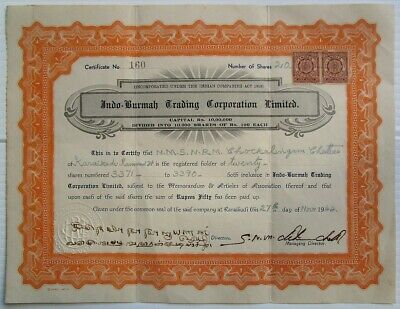 Certificate No. 160 Number of Shares
(INCORPORATED UNDER THE INDIAN COMPANIES ACT 1913)
Indo-Burmah Trading Corporation Limited.
CAPITAL Rs. 10,00,000
DIVIDED INTO 10,000 SHARES OF Rs. 100 EACH
This is to Certify that N.M.S.N.RM. Chockalingam Chettiar
of is the registered holder of twenty
shares numbered 3371 to 3390 both inclusive in Indo-Burmah Trading
Corporation Limited, subject to the Memorandum & Articles of Association thereof and that upon
each of such shares the sum of Rupees Fifty has been paid up.
Given under the common seal of the said company at Karaikudi this 27th day of
Directors.
Managing Director.